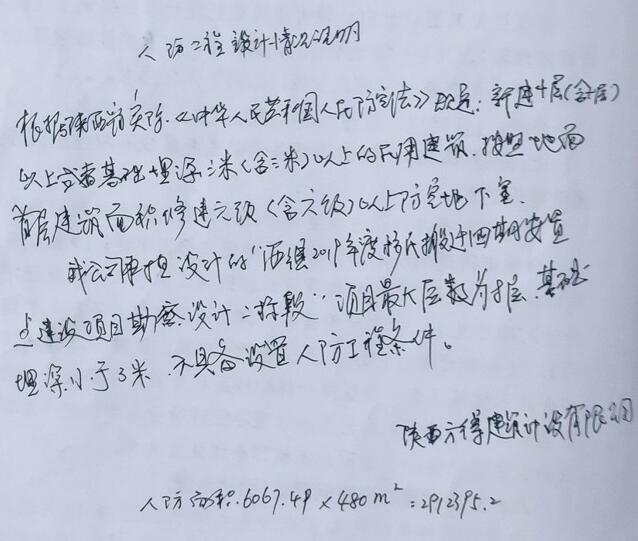 人防工程设计情况说明
根据陕西省实际.《中华人民共和国人民防空法》规定:新建十层(含层)
以上或者基础埋深三米(含三米)以上的民用建筑.按照地面
首层建筑面积修建六级(含六级)以上防空地下室.
我公司承担设计的"洒镇2019年度移民搬迁四期安置
点建设项目勘察.设计二标段"项目最大层数为8层.基础
埋深小于3米.不具备设置人防工程条件。
陕西方得建筑设计有限公司
人防面积.6067.49×480m²=2912395.2